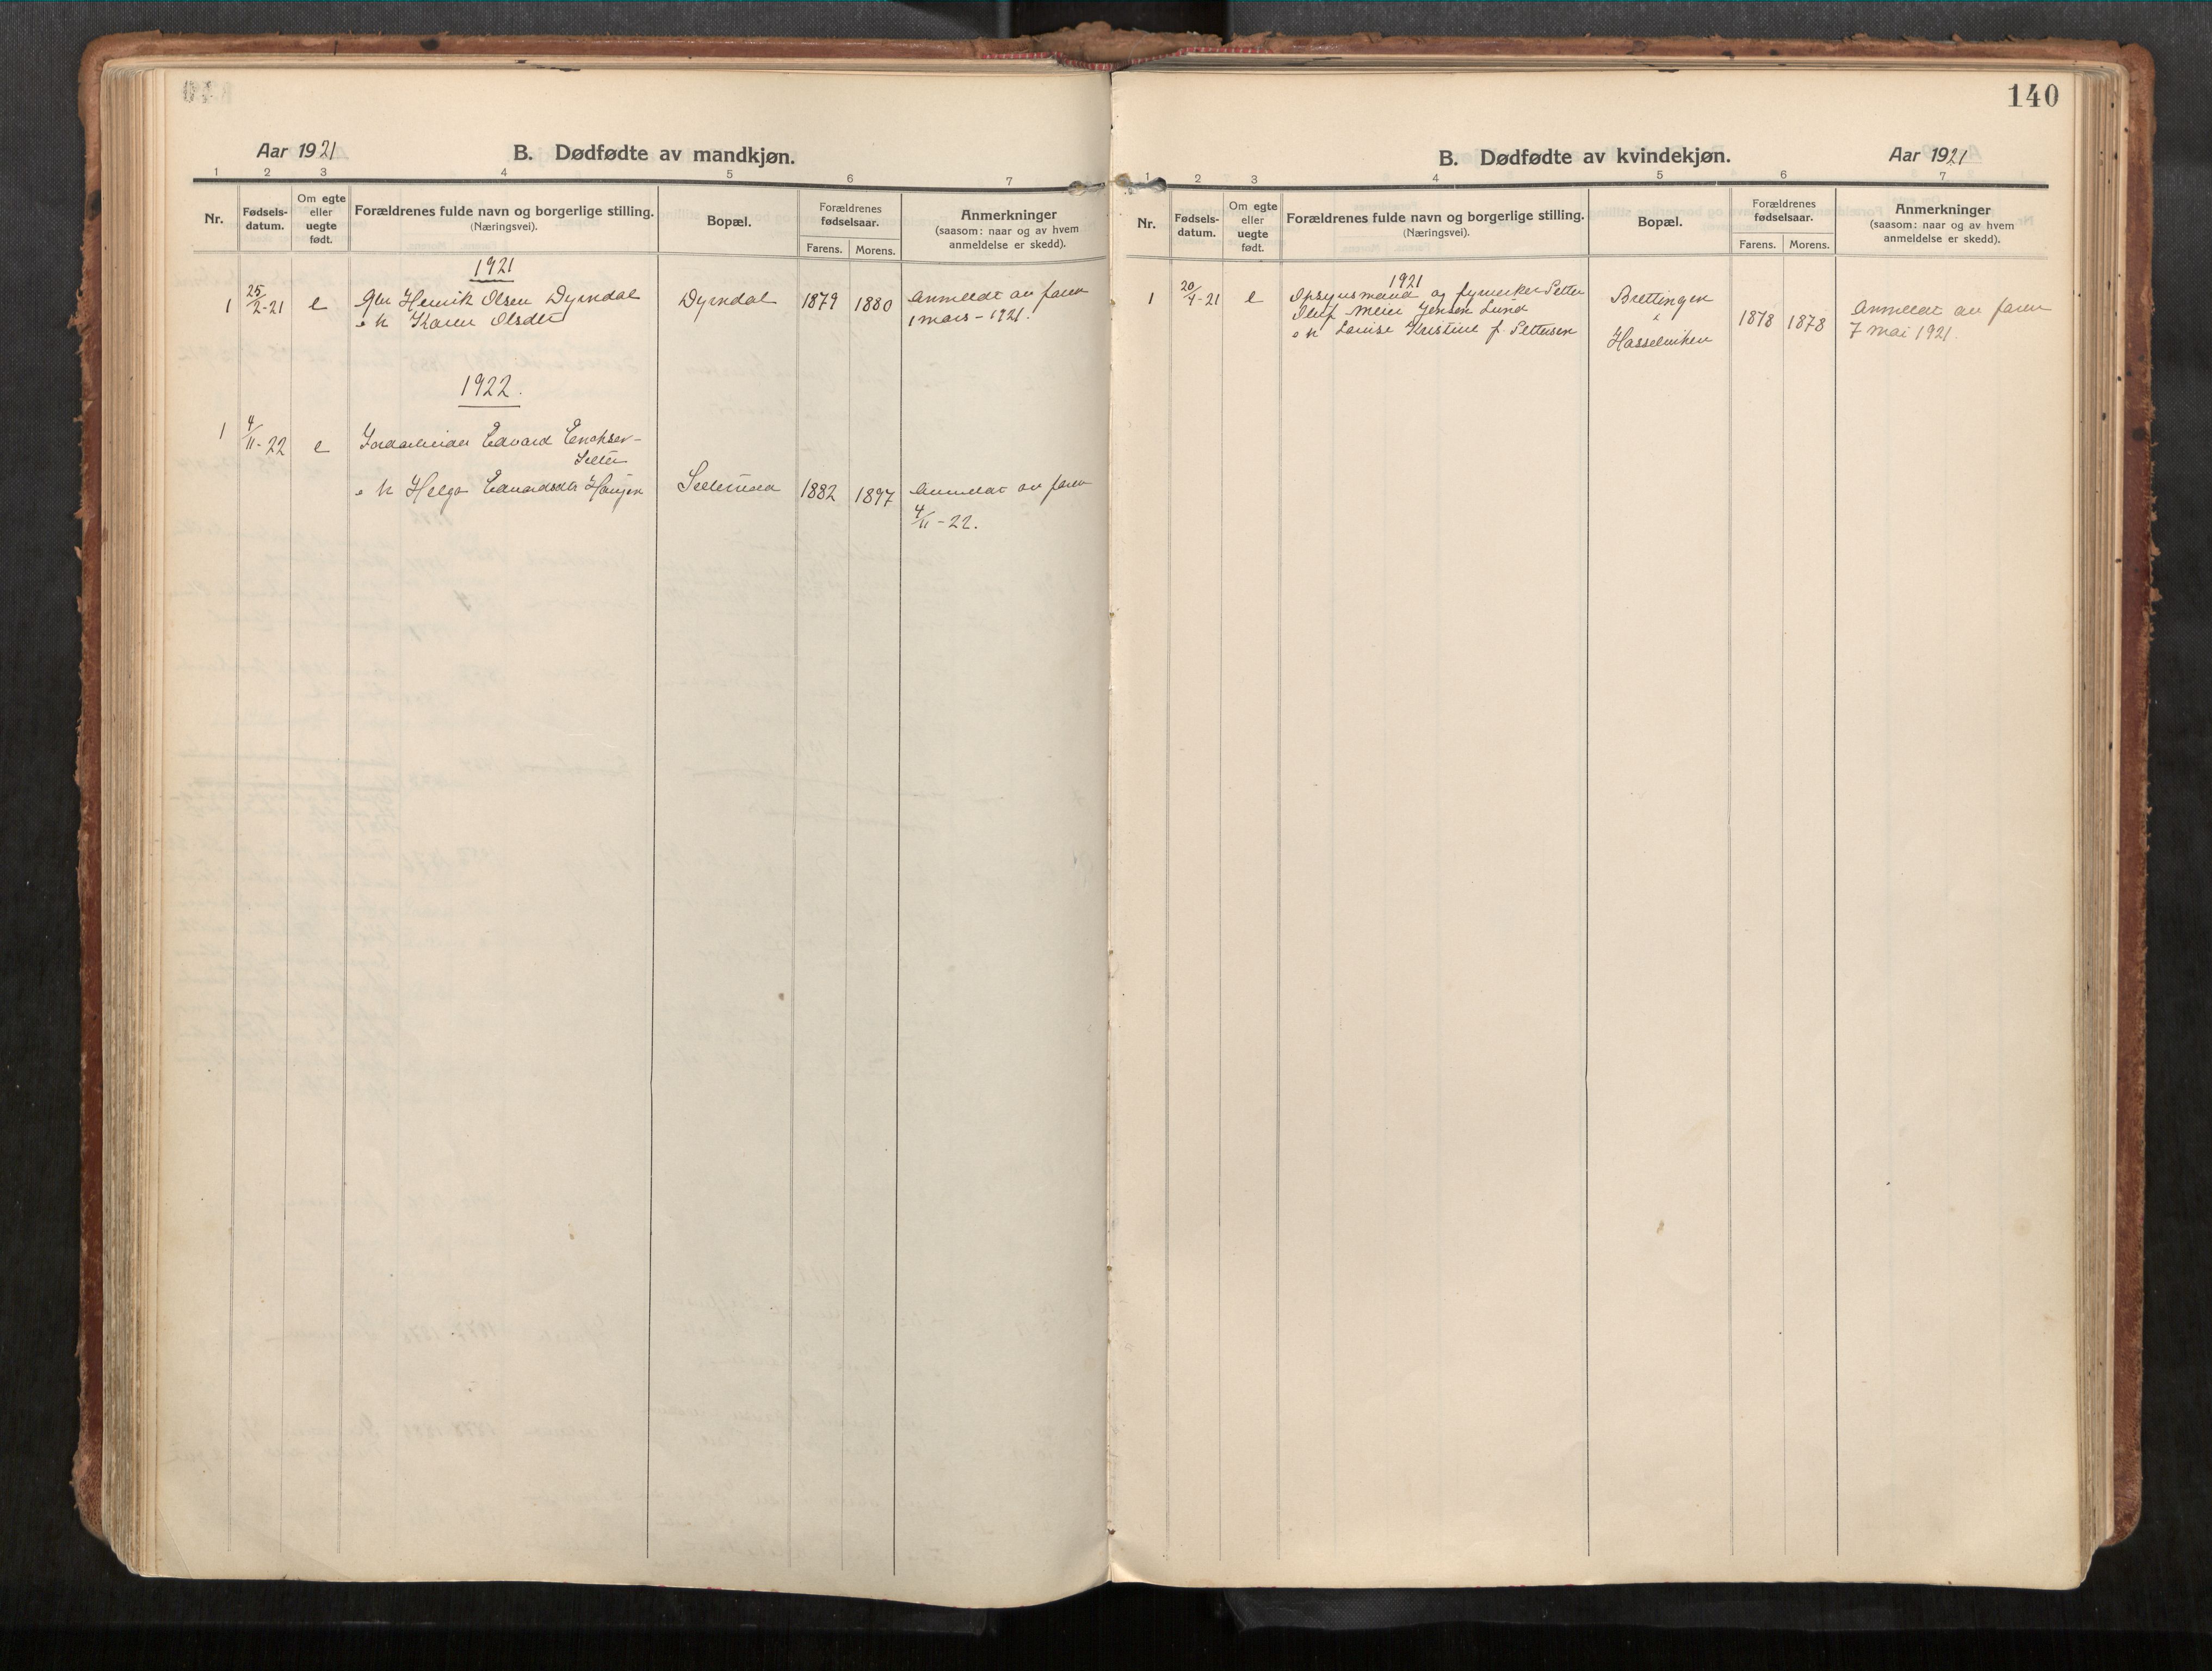 Aar 1921
B. Dødfødte av mandkjøn.
1 2 3 4 5 6 7
Nr.
Fødsels-
datum.
Om egte
eller
uegte
født.
Forældrenes fulde navn og borgerlige stilling.
(Næringsvei).
Bopæl.
Forældrenes
fødselsaar.
Farens. Morens.
Anmerkninger
(saasom: naar og av hvem
anmeldelse er skedd).
1921
1 25/2-21 e Gbr Henrik Olsen Dyrndal Dyrndal 1879 1880 Anmeldt av faren
o h Karen Olsdtr 1 mars - 1921.
1922.
1 4/11-22 e Jordarbeider Edvard Enoksen-
Selter
o h Helga Edvardsdtr 1882 1897 Anmeldt av faren
4/11-22.
140
B. Dødfødte av kvindekjøn.
Aar 1921
1 2 3 4 5 6 7
Nr.
Fødsels-
datum.
Om egte
eller
uegte
født.
Forældrenes fulde navn og borgerlige stilling.
(Næringsvei).
Bopæl.
Forældrenes
fødselsaar.
Farens. Morens.
Anmerkninger
(saasom: naar og av hvem
anmeldelse er skedd).
1921
1 20/4-21 e Opsynsmand og Petter Brettingen
Oluf Meier Jensen Lund 1878 1878 Anmeldt av faren
o h Louise Kristine f. Pettersen Hasselviken 7 mai 1921.